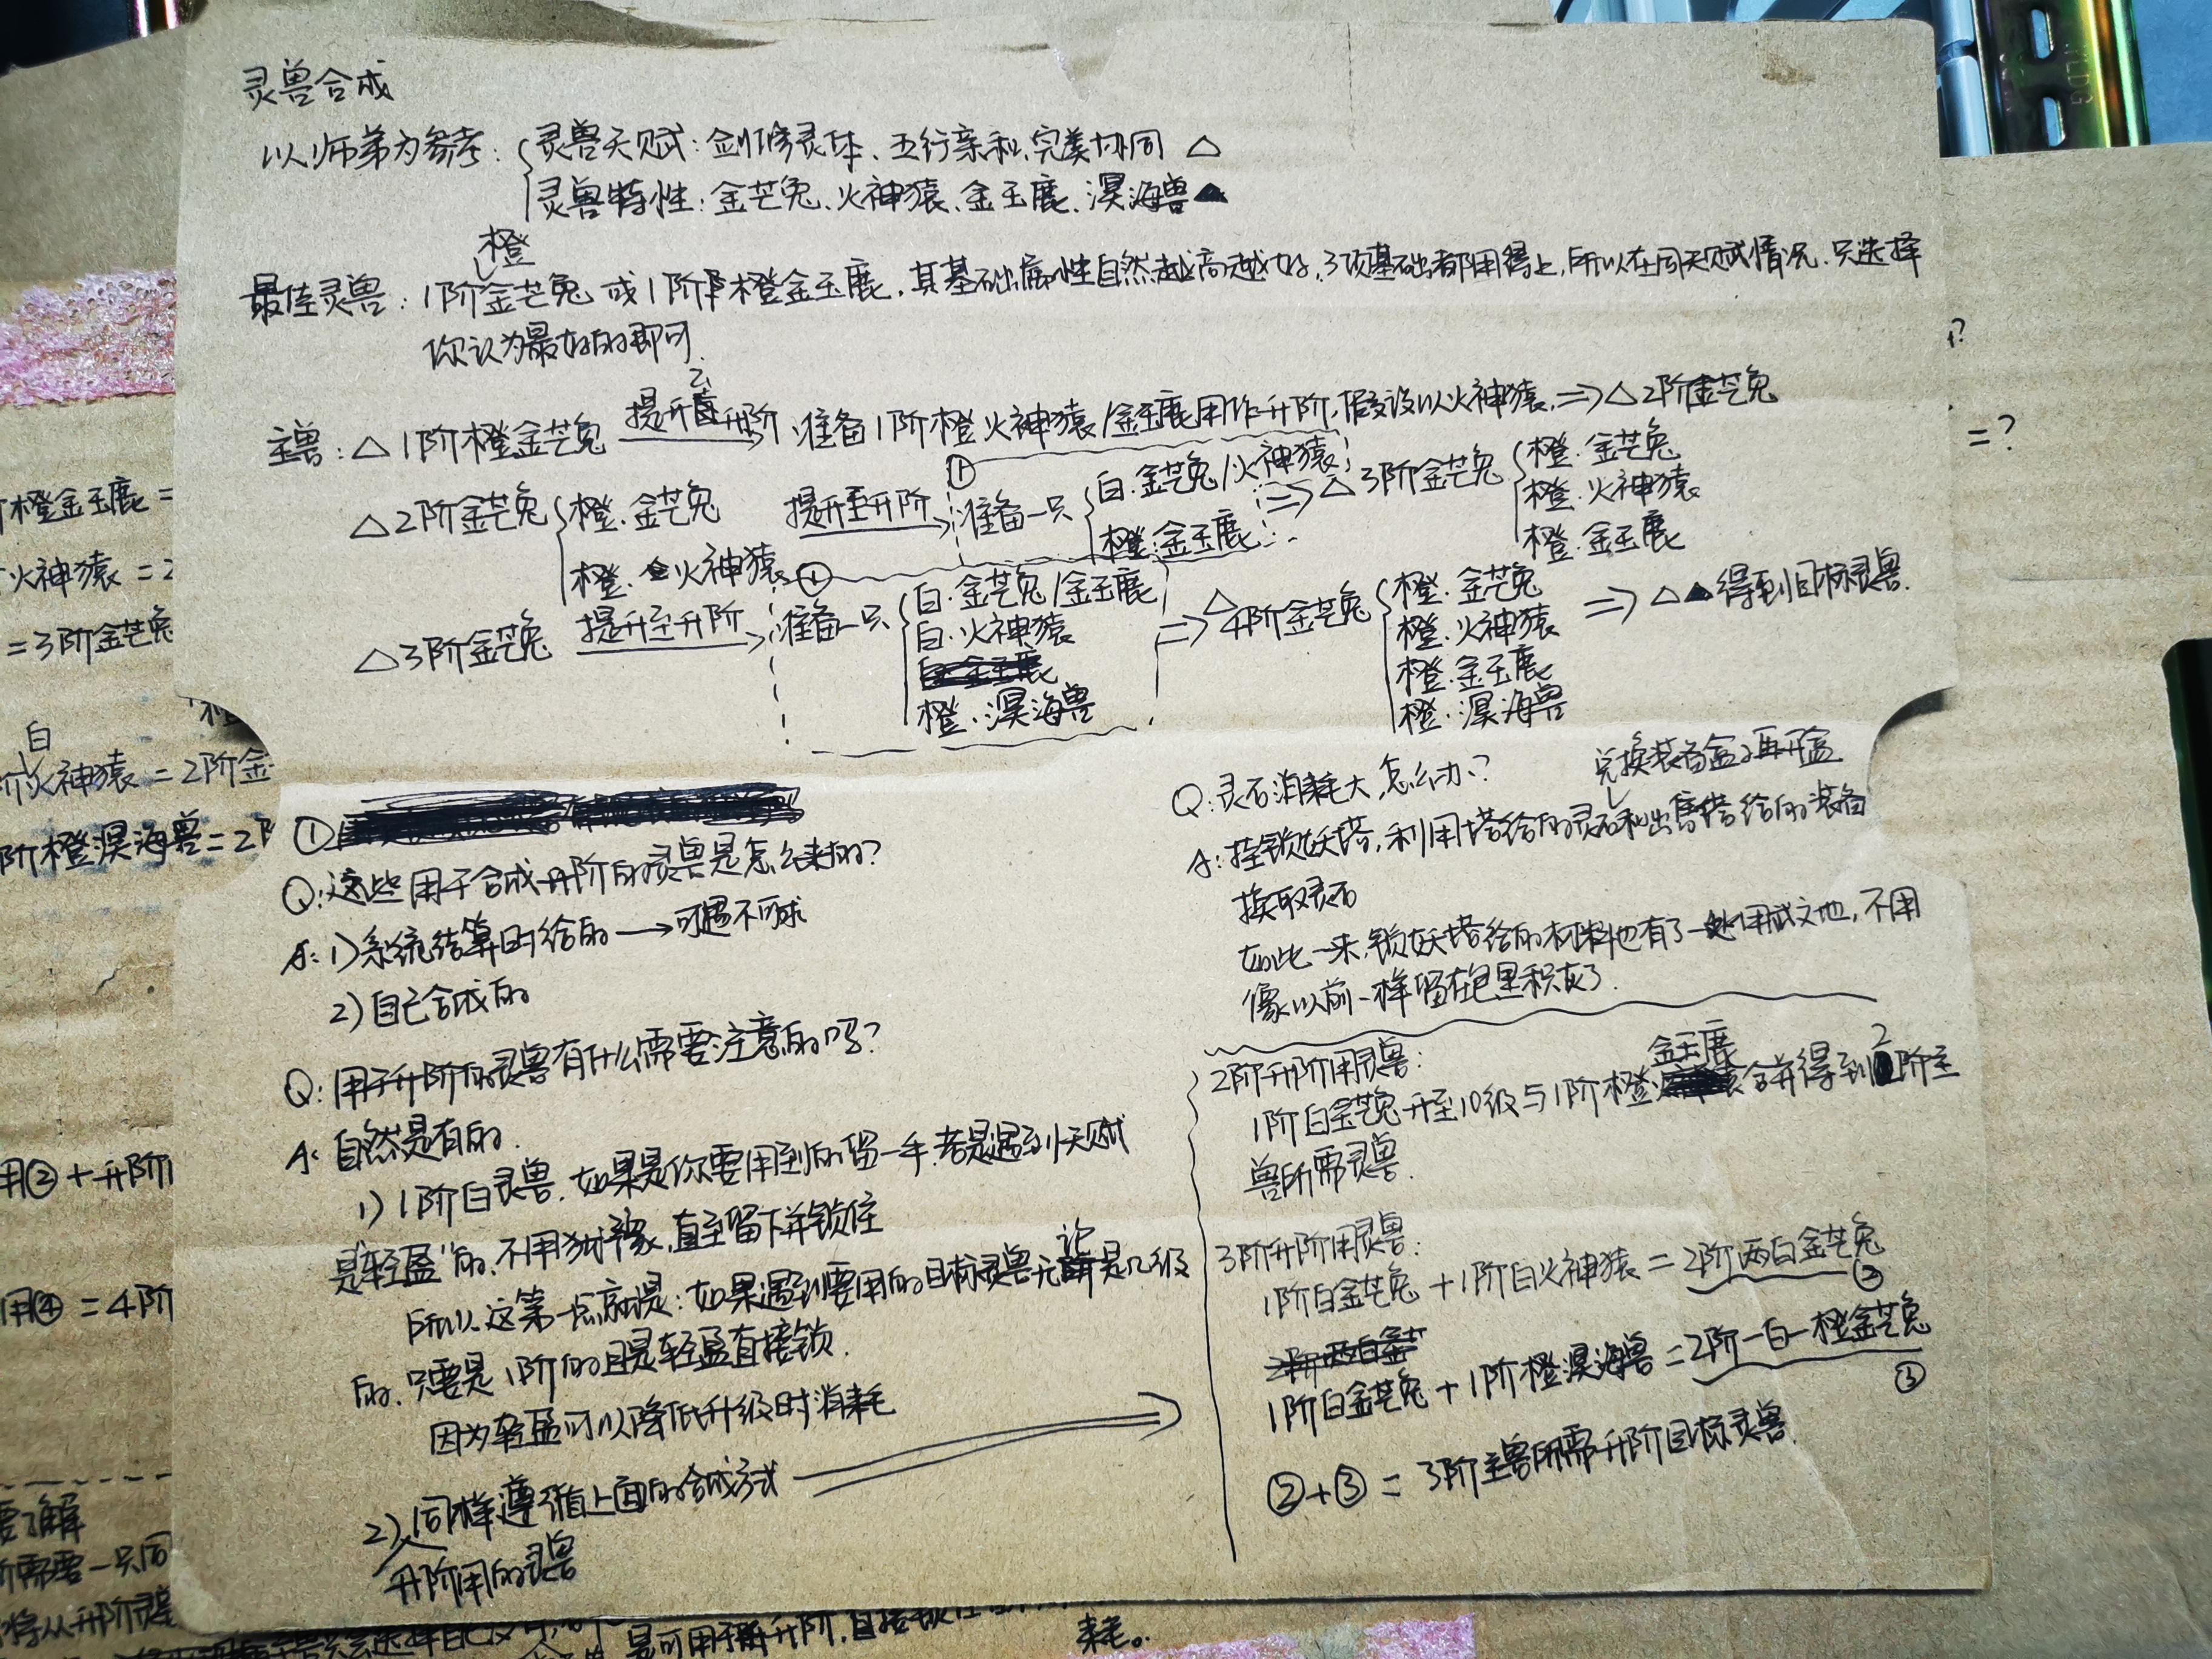 灵兽合成
以师弟为参考：灵兽天赋：剑修灵体、五行亲和、完美协同 △
灵兽特性：金芒兔、火神猿、金玉鹿、溟海兽▲
橙
最佳灵兽：1阶金芒兔 或1阶橙金玉鹿，其基础属性自然越高越好，3项基础都用得上，所以在同天赋情况，只选择
你认为最好的即可.
主兽：△1阶橙金芒兔 提升至升阶 准备1阶橙火神猿/金玉鹿用作升阶，假设以火神猿，⇒△2阶金芒兔
△2阶金芒兔 橙·金芒兔 提升至升阶 ① 准备一只 白·金芒兔/火神猿 ⇒△3阶金芒兔 橙·金芒兔
橙·火神猿
橙·火神猿 橙·金玉鹿 橙·金玉鹿
△3阶金芒兔 提升至升阶 ① 准备一只 白·金芒兔/金玉鹿 ⇒△4阶金芒兔 橙·金芒兔 ⇒△▲得到目标灵兽.
白·火神猿 橙·火神猿
橙·金玉鹿
橙·溟海兽 橙·溟海兽
①
Q：这些用于合成升阶的灵兽是怎么来的？
A：1）系统结算时给的→可遇不可求
2）自己合成的
Q：用于升阶的灵兽有什么需要注意的吗？
A：自然是有的.
1）1阶白灵兽，如果是你要用到的留一手，若是遇到天赋
是"轻盈"的，不用犹豫，直至留下并锁住
所以，这第一点就是：如果遇到要用的目标灵兽无论是几级
的，只要是1阶的且是轻盈直接锁.
因为轻盈可以降低升级时消耗
2）同样遵循上面的合成方式
升阶用的灵兽
Q：灵石消耗大，怎么办？
兑换装备盒再开盒
A：挂锁妖塔，利用塔给的灵石和出售塔给的装备
换取灵石
如此一来，锁妖塔给的材料也有了用武之地，不用
像以前一样留在包里积灰了.
2阶升阶用灵兽：
金玉鹿
1阶白金芒兔升至10级与1阶橙合并得到2阶主
兽所需灵兽.
3阶升阶用灵兽：
1阶白金芒兔＋1阶白火神猿＝2阶两白金芒兔
②
1阶白金芒兔＋1阶橙溟海兽＝2阶一白一橙金芒兔
③
②＋③＝3阶主兽所需升阶目标灵兽.
?
=?
阶橙金玉鹿=
火神猿=2
=3阶金芒兔
白
阶火神猿=2阶金
阶橙溟海兽=2阶
用②+升阶
用④=4阶
要了解
阶需要一只同
将从升阶灵
是可用于升阶，
耗。